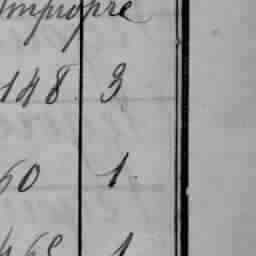 Impropre
148 3
60 1
468 1